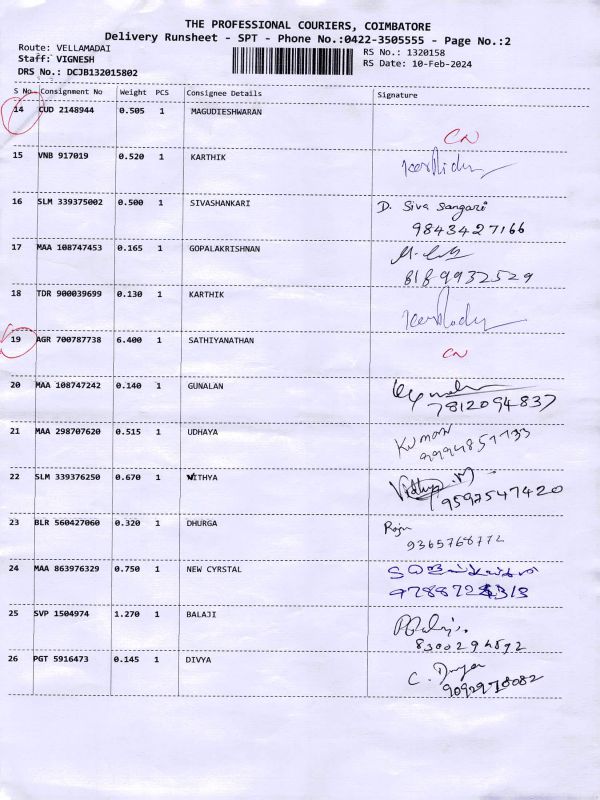 THE PROFESSIONAL COURIERS, COIMBATORE
Delivery Runsheet - SPT - Phone No.:0422-3505555 - Page No.:2
Route: VELLAMADAI
RS No.: 1320158
Staff: VIGNESH
RS Date: 10-Feb-2024
DRS No.: DCJB132015802
S No Consignment No Weight PCS Consignee Details Signature
14 CUD 2148944 0.505 1 MAGUDIESHWARAN
CN
15 VNB 917019 0.520 1 KARTHIK
16 SLM 339375002 0.500 1 SIVASHANKARI D. Siva Sangari
9843427166
17 MAA 108747453 0.165 1 GOPALAKRISHNAN
9932529
18 TDR 900039699 0.130 1 KARTHIK
19 AGR 700787738 6.400 1 SATHIYANATHAN
CN
20 MAA 108747242 0.140 1 GUNALAN
7812094837
21 MAA 298707620 0.515 1 UDHAYA Kumar
22 SLM 339376250 0.670 1 VITHYA Vidhya .M
9597547420
23 BLR 560427060 0.320 1 DHURGA Raju
9365768772
24 MAA 863976329 0.750 1 NEW CYRSTAL
25 SVP 1504974 1.270 1 BALAJI
8300294592
26 PGT 5916473 0.145 1 DIVYA C. Divya